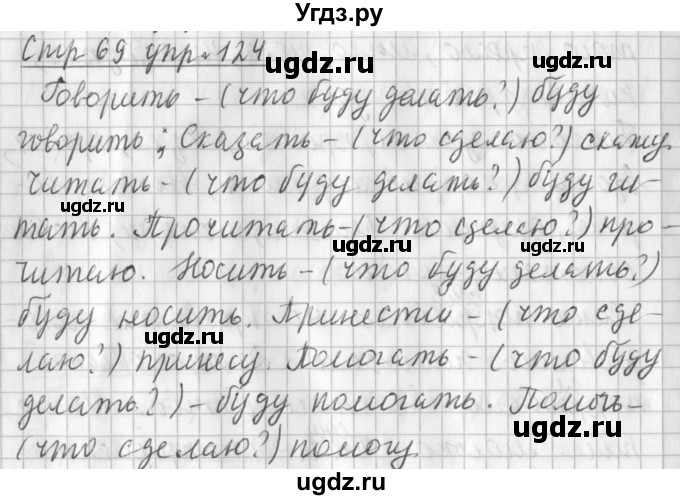 Угдз.ру
Стр 69 упр. 124
ugdz.ru
ugdz.ru
Говорить – (что буду делать?) буду
ugdz.ru
говорить; Сказать – (что сделаю?) скажу.
ugdz.ru
Читать – (что буду делать?) буду чи-
ugdz.ru
тать. Прочитать – (что сделаю?) про-
ugdz.ru
читаю. Носить – (что буду делать?)
ugdz.ru
буду носить. Принести – (что сде-
ugdz.ru
лаю?) принесу. Помогать – (что буду
ugdz.ru
делать?) – буду помогать. Помочь –
ugdz.ru
ugdz.ru
(что сделаю?) помогу.
Угдз.ру